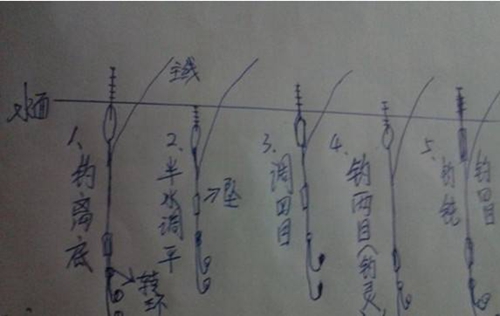 主线
水面
1、钓离底
2、半水调平
坠
3、调四目
4、钓两目(钓灵)
5、钓钝
钓四目
转环